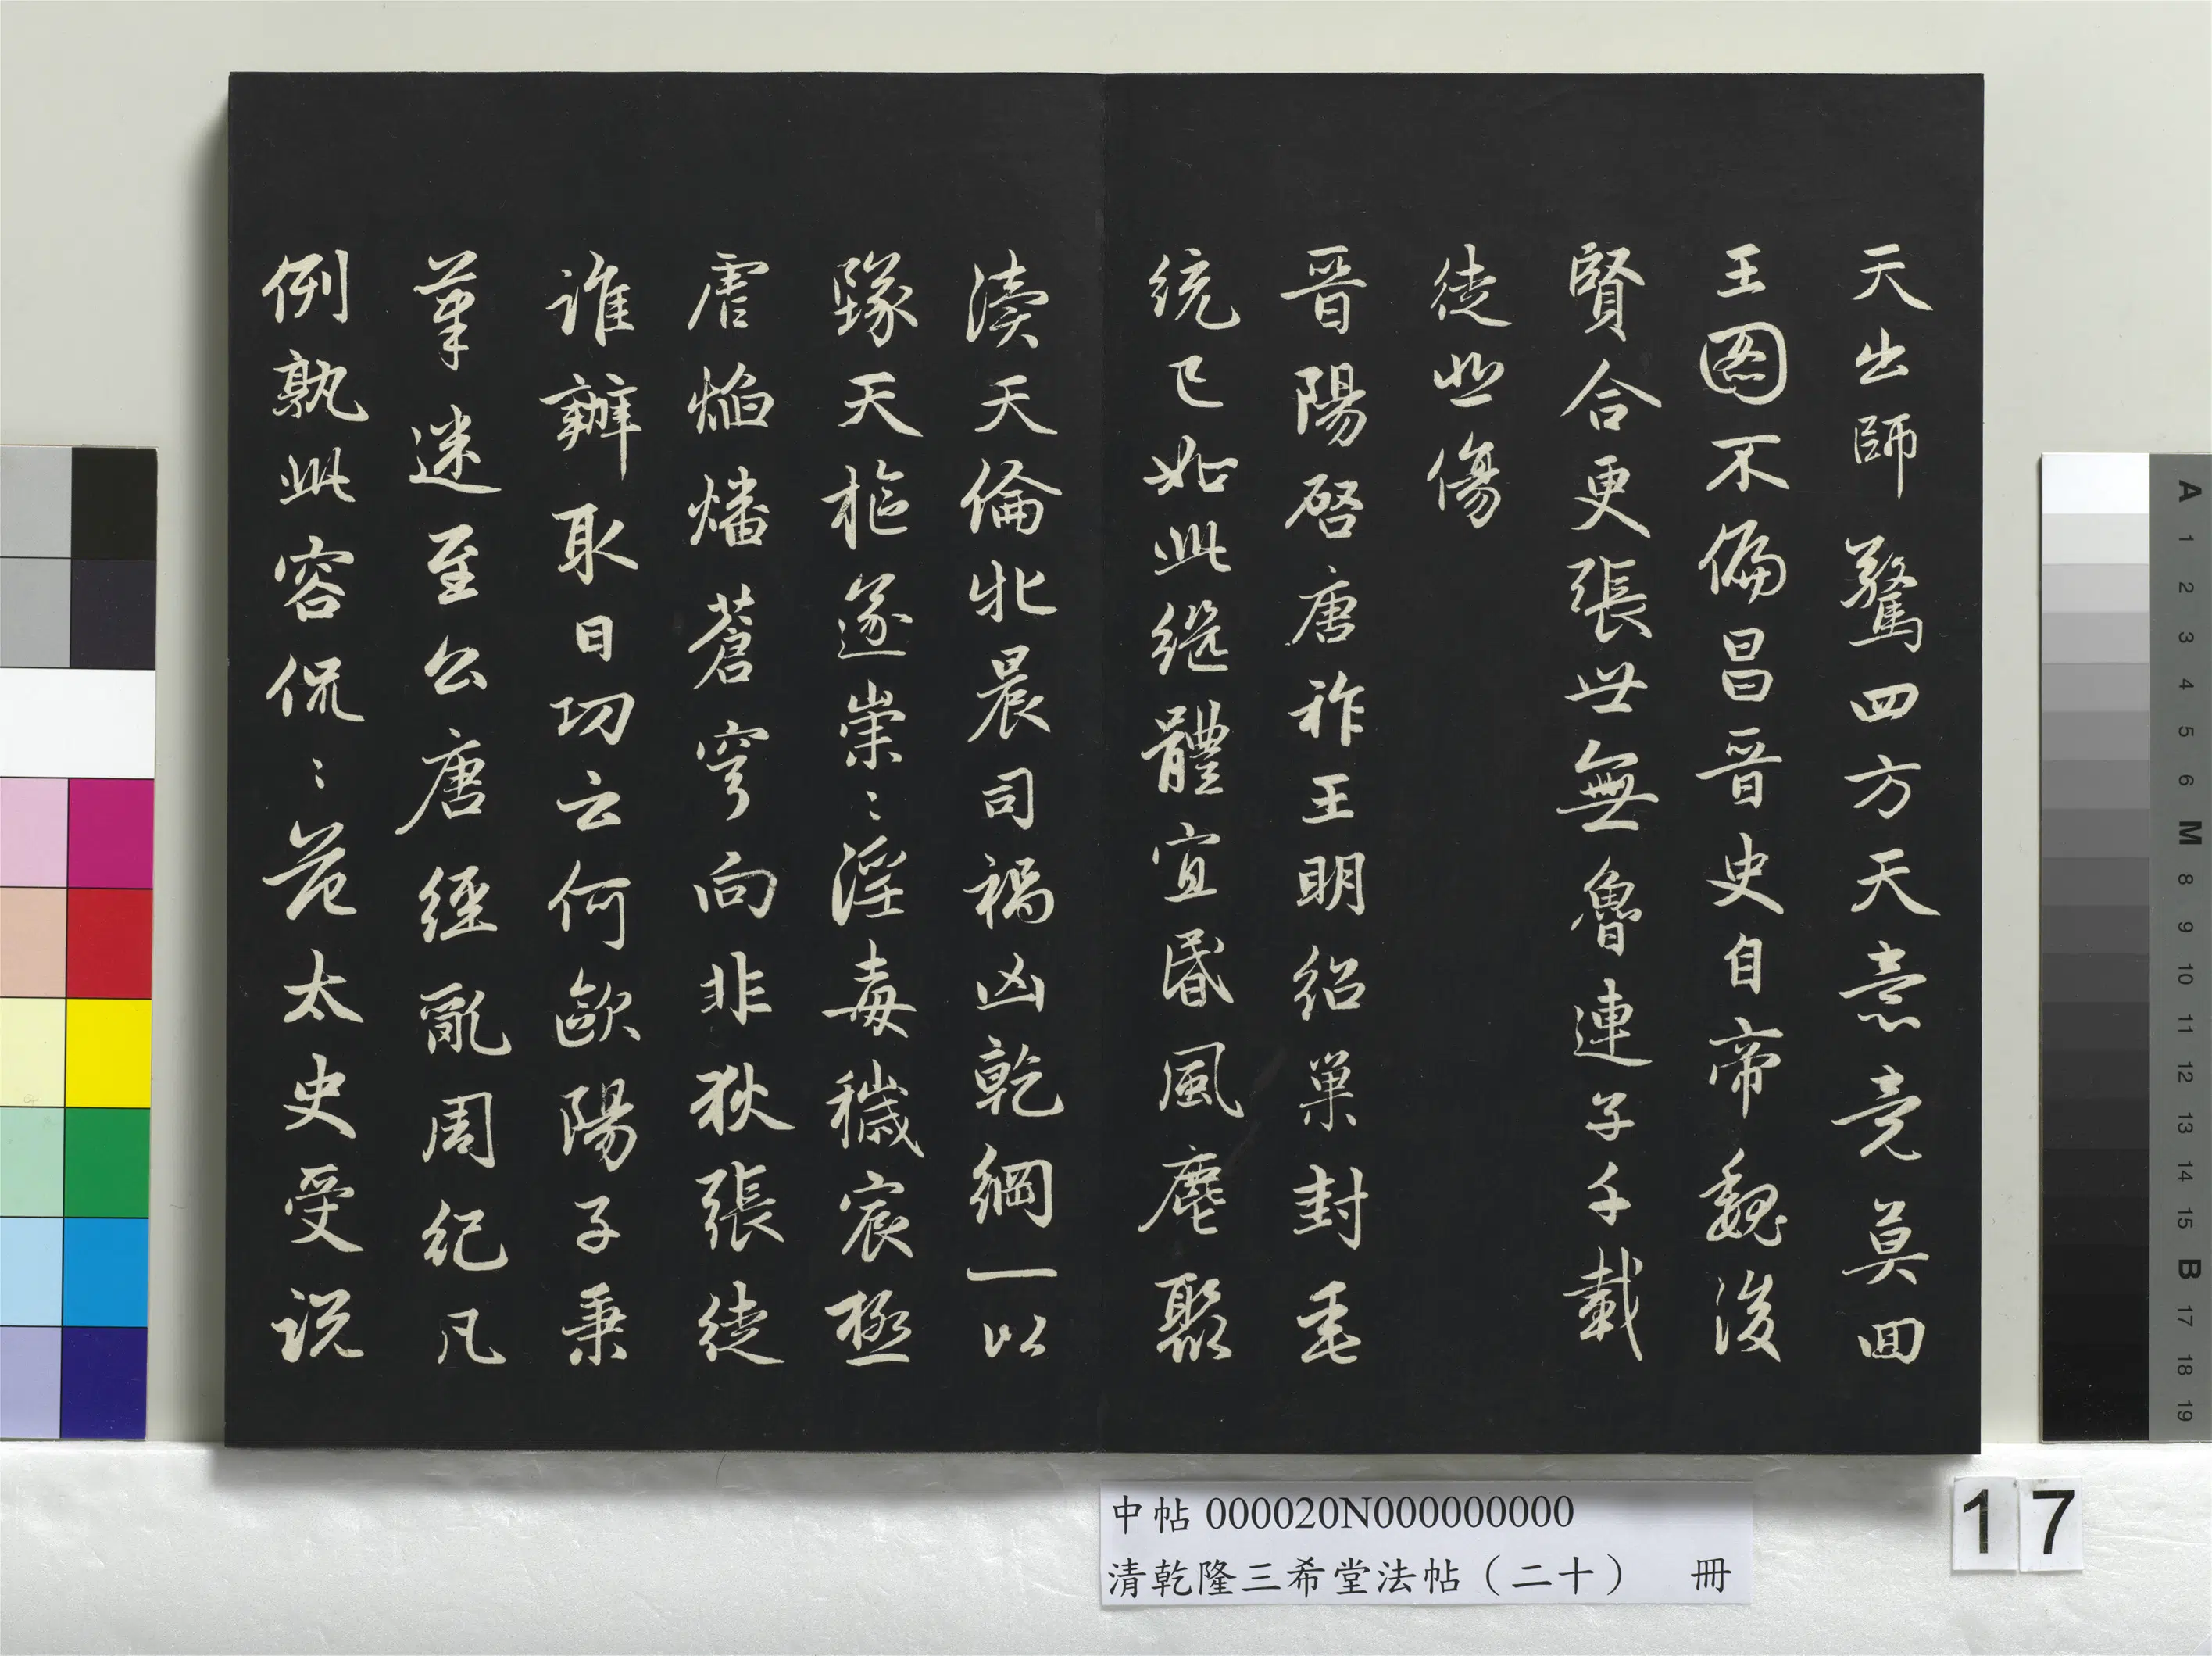 天出師驚四方天意竟莫回
王圖不偏昌晉史自帝魏後
賢合更張世無魯連子千載
徒悲傷
晉陽啓唐祚王明紹巢封垂
統已如此繼體宜昏風麀聚
瀆天倫牝晨司禍凶乾綱一以
墜天樞遂崇〻淫毒穢宸極
虐焰燔蒼穹向非狄張徒
誰辦取日功云何歐陽子秉
筆迷至公唐經亂周紀凡
例孰此容侃〻范太史受說
中帖 000020N000000000
清乾隆三希堂法帖（二十） 冊
17
A
1
2
3
4
5
6
M
8
9
10
11
12
13
14
15
B
17
18
19